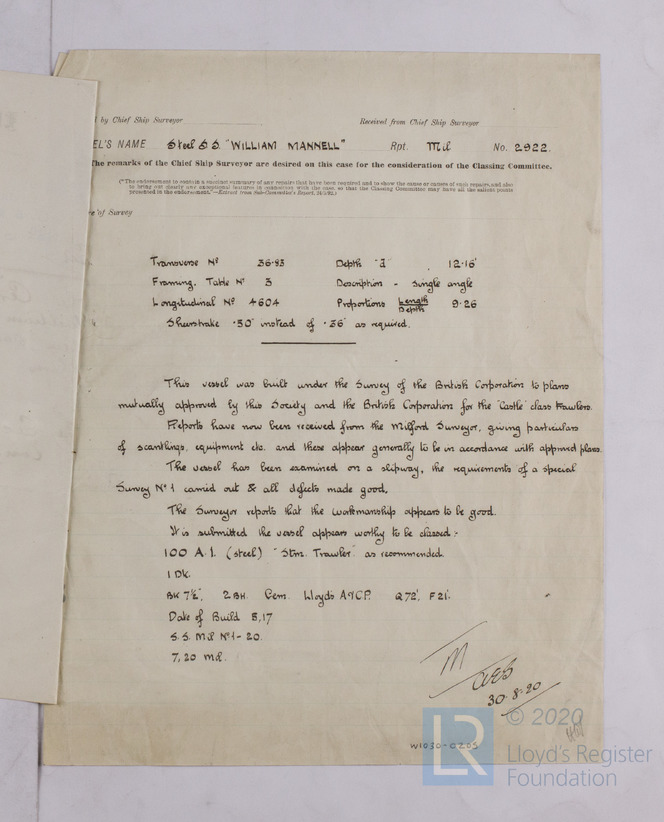 by Chief Ship Surveyor Received from Chief Ship Surveyor
EL'S NAME Steel S.S. "WILLIAM MANNELL" Rpt. Mil No. 2922.
The remarks of the Chief Ship Surveyor are desired on this case for the consideration of the Classing Committee.
("The endorsement to contain a succinct summary of any repairs that have been required and to show the cause or causes of such repairs, and also
to bring out clearly any exceptional features in connection with the case, so that the Classing Committee may have all the salient points
presented in the endorsement."—Extract from Sub-Committee's Report,
of Survey
Transverse No 36.93 Depth "d" 12.16'
Framing, Table No 3 Description - single angle
Longitudinal No 4604 Proportions Length/Depth 9.26
Sheerstrake .30" instead of .36" as required.
This vessel was built under the Survey of the British Corporation to plans
mutually approved by this Society and the British Corporation for the "Castle" class Trawlers.
Reports have now been received from the Milford Surveyor, giving particulars
of scantlings, equipment etc. and these appear generally to be in accordance with approved plans.
The vessel has been examined on a slipway, the requirements of a special
Survey No 1 carried out & all defects made good.
The Surveyor reports that the workmanship appears to be good.
It is submitted the vessel appears worthy to be classed:-
100 A.1. (steel) "Stm. Trawler" as recommended.
1 Dk.
BK 7½", 2 BH. Cem. Lloyd's A&CP. Q 72', F 21'.
Date of Build 5,17
S.S. Mil No 1 - 20.
7,20 Mil.
M
30.8.20
W1030-0205
LR © 2020
Lloyd's Register
Foundation